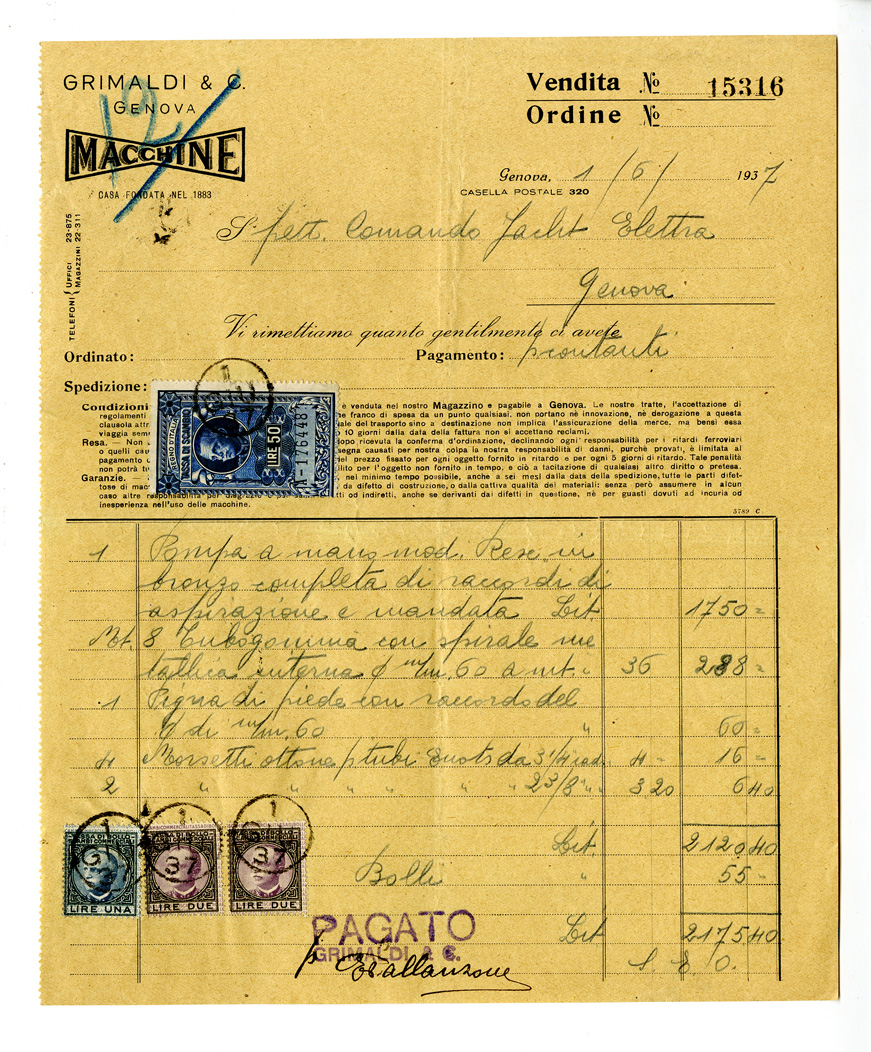 GRIMALDI & C.
GENOVA
12
MACCHINE
CASA FONDATA NEL 1883
TELEFONI { UFFICI 23-875
MAGAZZINI 22 311
Vendita No 15316
Ordine No
Genova, 1/6/ 1937
CASELLA POSTALE 320
Spett. Comando Jacht Elettra
Genova
Vi rimettiamo quanto gentilmente ci avete
Ordinato: Pagamento: prontanti
Spedizione:
Condizioni è venduta nel nostro Magazzino e pagabile a Genova. Le nostre tratte, l'accettazione di
regolamenti franco di spesa da un punto qualsiasi, non portano nè innovazione, nè derogazione a questa
clausola attr ale del trasporto sino a destinazione non implica l'assicurazione della merce, ma bensì essa
viaggia sem 10 giorni dalla data della fattura non si accettano reclami.
Resa. — Non dopo ricevuta la conferma d'ordinazione, declinando ogni responsabilità per i ritardi ferroviari
o quelli cau segna causati per nostra colpa la nostra responsabilità di danni, purchè provati, è limitata al
pagamento del prezzo fissato per ogni oggetto fornito in ritardo e per ogni 5 giorni di ritardo. Tale penalità
non potrà tu ilito per l'oggetto non fornito in tempo, e ciò a tacitazione di qualsiasi altro diritto o pretesa.
Garanzie. — nel minimo tempo possibile, anche a sei mesi dalla data della spedizione, tutte le parti difet-
tose di mac da difetto di costruzione, o dalla cattiva qualità dei materiali: senza però assumere in alcun
caso altre responsabilità per tti od indiretti, anche se derivanti dai difetti in questione, nè per guasti dovuti ad incuria od
inesperienza nell'uso delle macchine.
REGNO D'ITALIA
TASSA DI SCAMBIO
LIRE 50
A-176448
5789 C
1 Pompa a mano mod. Rese in
bronzo completa di raccordi di
aspirazione e mandata Lit. 1750 =
Mt. 8 Tubogomma con spirale me
tallica interna ϕ m/m. 60 a mt. " 36 288 =
1 Pigna di piede con raccordo del
ϕ di m/m. 60 " 60 =
4 Morsetti ottone p tubi da 3 1/4 cad. 4 - 16 =
2 " " " " " " 2 3/8 " " 3 20 6 40
Lit. 2120 40
Bolli " 55 -
Lit 2175 40
S. E. O.
TASSA DI BOLLO
LIRE UNA
LIRE DUE
LIRE DUE
1
37
1
37
PAGATO
GRIMALDI & C.
p.